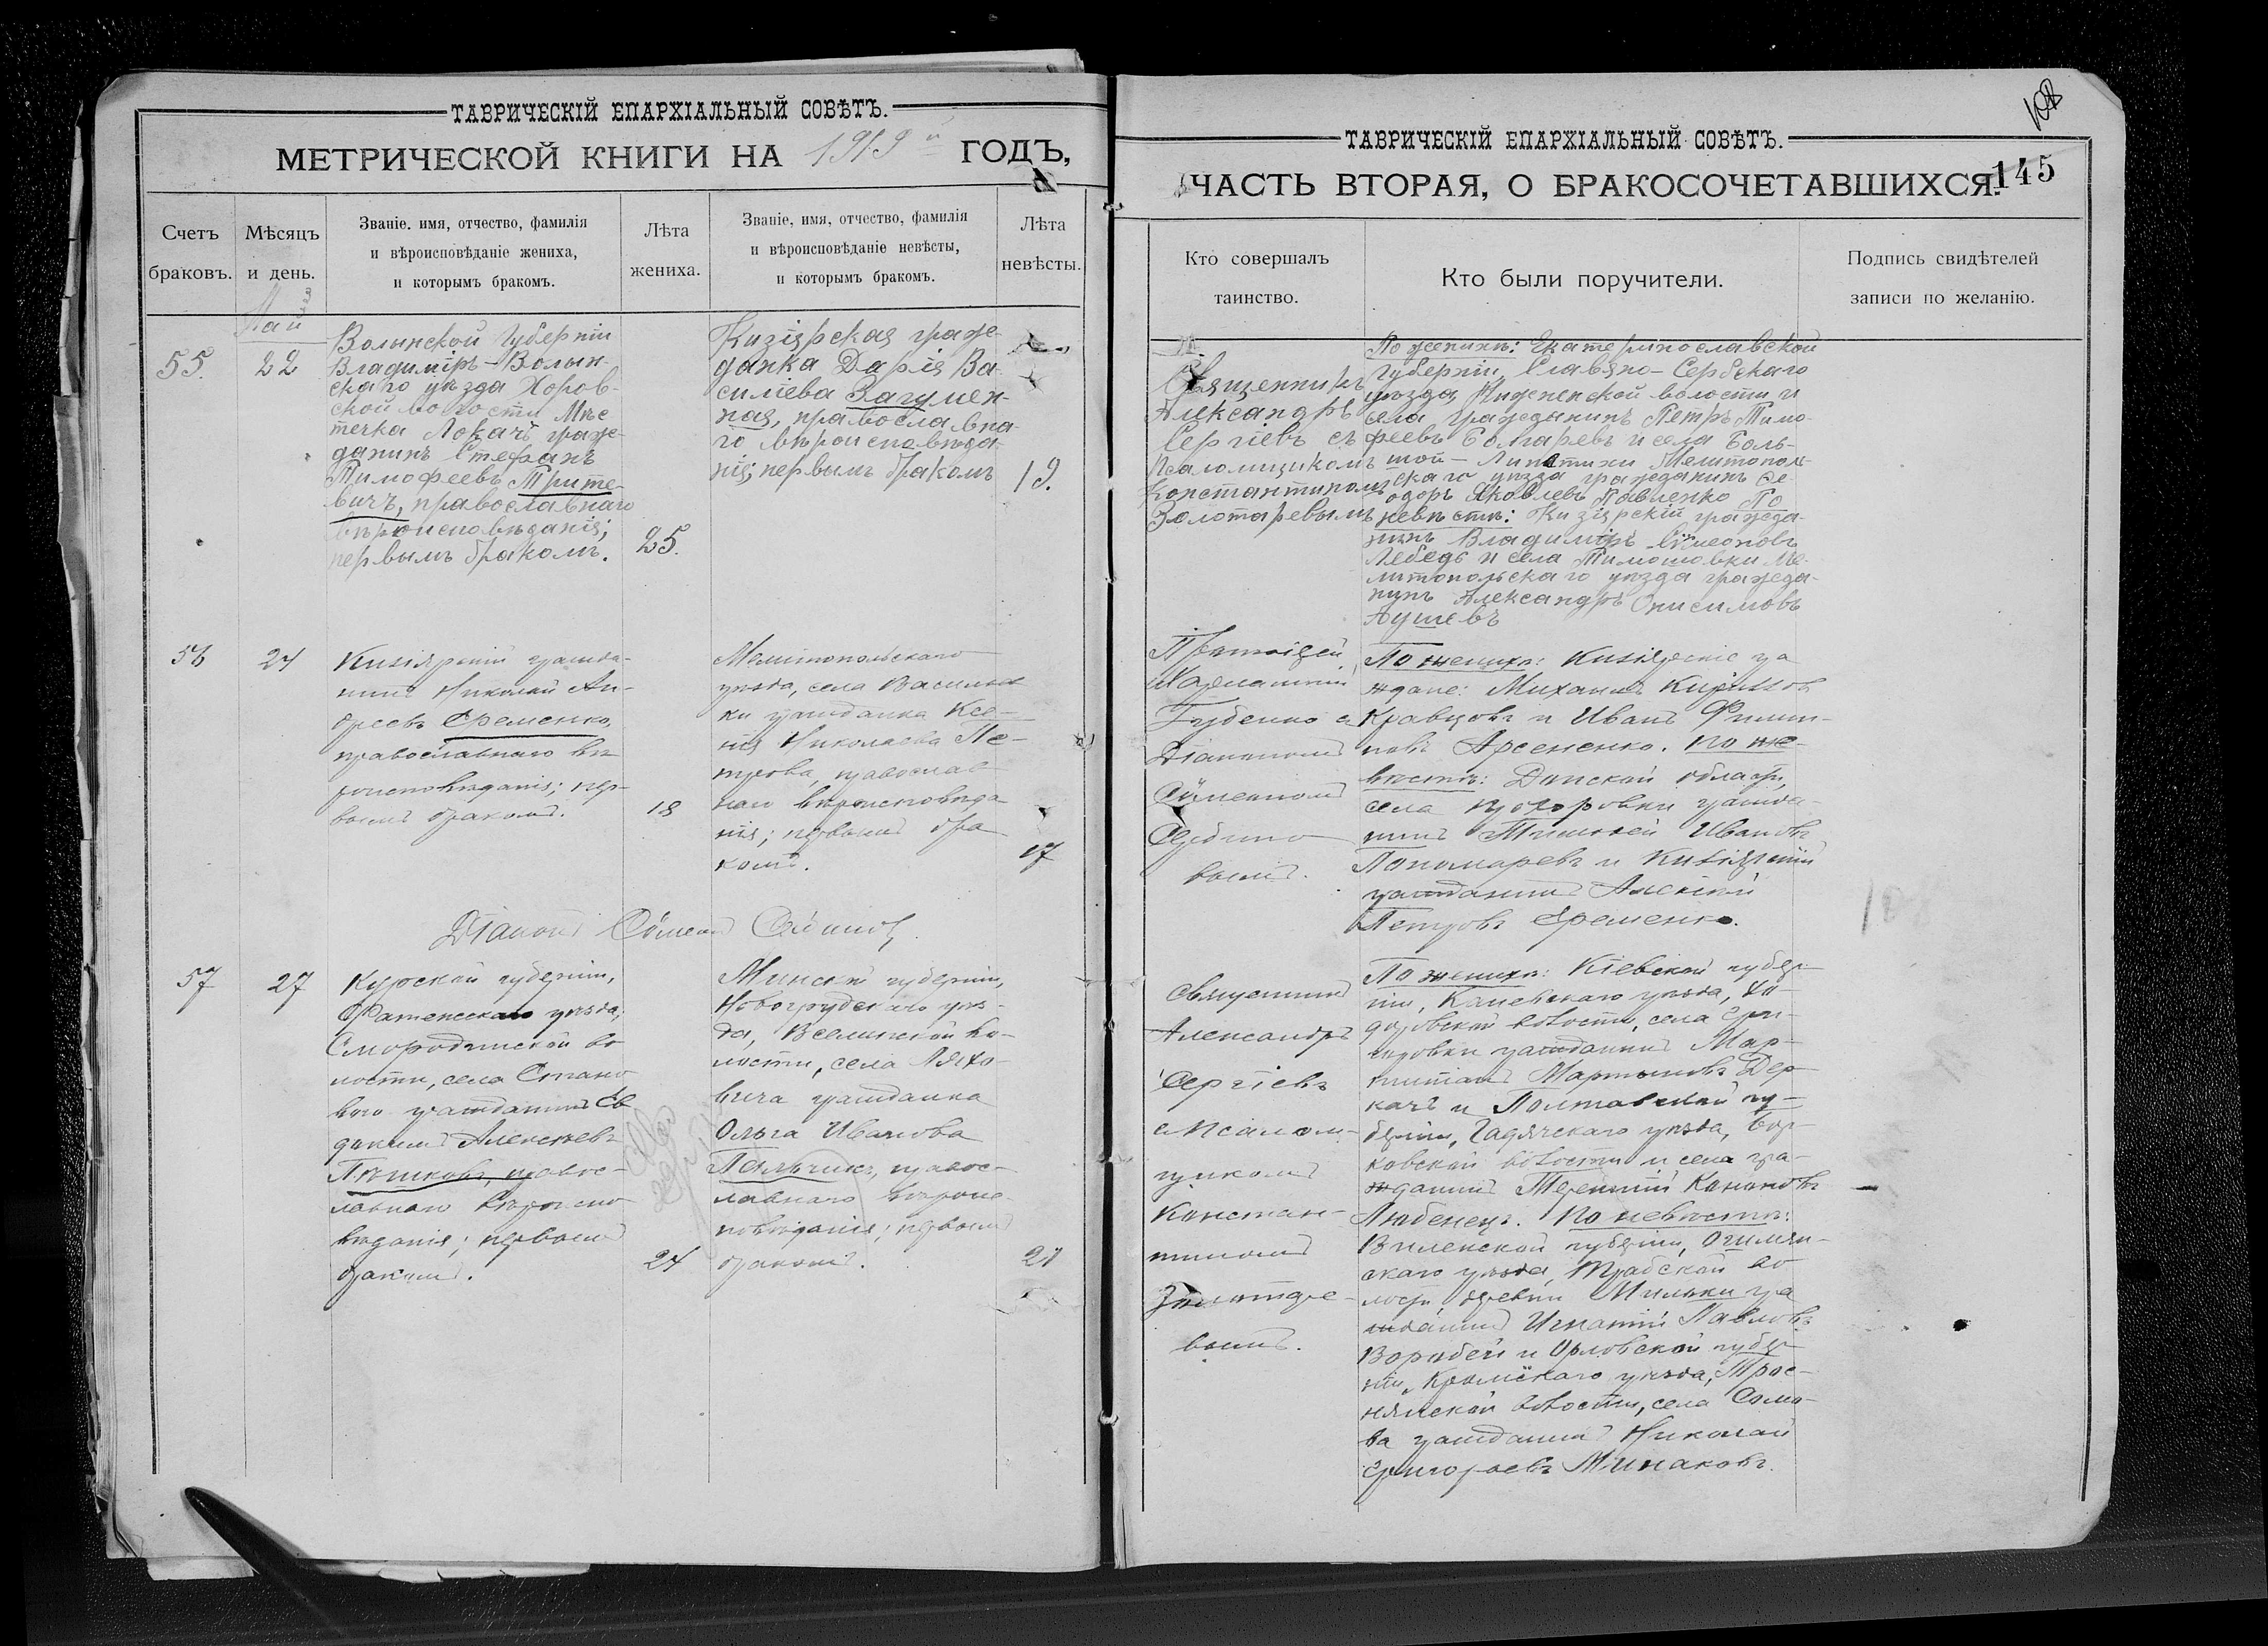 ТАВРИЧЕСКІЙ ЕПАРХІАЛЬНЫЙ СОВѢТЪ.
МЕТРИЧЕСКОЙ КНИГИ НА 1919й ГОДЪ,
Счетъ браковъ.
Мѣсяцъ и день.
Званіе. имя, отчество, фамилія
и вѣроисповѣданіе жениха,
и которымъ бракомъ.
Лѣта жениха.
Званіе, имя, отчество, фамилія
и вѣроисповѣданіе невѣсты,
и которымъ бракомъ.
Лѣта невѣсты.
Май
55.
22
Волынской Губерніи
Владиміръ-Волын-
скаго уѣзда Хоров-
ской волости Мѣс
течка Локачъ граж-
данинъ Стефанъ
Тимофеевъ Трите-
вичъ, православнаго
вѣроисповѣданія;
первымъ бракомъ.
25.
Кизіярская граж-
данка Дарія Ва-
силіева Загумен-
ная, православна-
го вѣроисповѣда-
нія; первымъ бракомъ
19.
56
24
Кизіярскій гражда-
нинъ Николай Ан-
дреевъ Еременко,
православнаго вѣ-
роисповѣданія; пер-
вымъ бракомъ.
18
Мелитопольскаго
уѣзда, села Василье
ки гражданка Ксе-
нія Николаева Пе-
трова, православ
наго вѣроисповѣда
нія; первымъ бра
комъ.
17
Діаконъ Сѵмеонъ
57
27
Курской губерніи,
Фатежскаго уѣзда,
Смородинской во
лости, села Стано
вого гражданинъ Ев
докимъ Алексѣевъ
Пѣшковъ, правос-
лавнаго вѣроиспо
вѣданія; первымъ
бракомъ.
24
Минской губерніи,
Новогрудскаго уѣз-
да, волости, села Ляхо-
вича гражданка
Ольга Иванова
правос-
лавнаго вѣроис-
повѣданія; первымъ
бракомъ.
21
ТАВРИЧЕСКІЙ ЕПАРХІАЛЬНЫЙ СОВѢТЪ.
ЧАСТЬ ВТОРАЯ, О БРАКОСОЧЕТАВШИХСЯ.
145
Кто совершалъ
таинство.
Кто были поручители.
Подпись свидѣтелей
записи по желанію.
Священникъ
Александръ
Сергіевъ съ
Псаломщикомъ
Константиномъ
Золотаревымъ
По женихѣ: Екатеринославской
Губерніи, Славяно-Сербскаго
уѣзда волости и
села гражданинъ Петръ Тимо-
феевъ Бондаревъ и села Боль-
шой-Лепатихи Мелитополь-
скаго уѣзда гражданинъ Фе-
одоръ Яковлевъ Павленко По
невѣстѣ: Кизіярскій гражда-
нинъ Владиміръ Сѵмеоновъ
Лебедь и села Тимошовки Ме-
литопольскаго уѣзда гражда-
нинъ Александръ Онисимовъ
Протоіерей
Губенко съ
Діакономъ
Сѵмеономъ
По женихѣ: Кизіярскіе гра
ждане: Михаилъ Кирилловъ
Кравцовъ и Иванъ Филип-
повъ Арсененко. По не-
вѣстѣ: Донской области,
села гражда-
нинъ Тимофей Ивановъ
Пономаревъ и Кизіярскій
гражданинъ Алексѣй
Петровъ Еременко.
Священникъ
Александръ
Сергіевъ
съ псалом-
щикомъ
Констан-
тиномъ
Золотаре-
вымъ.
По женихѣ: Кіевской губер-
ніи, Каневскаго уѣзда,
волости, села
гражданинъ
Мартыновъ Дер-
качъ и Полтавской гу-
берніи, Гадячскаго уѣзда,
волости и села гра-
жданинъ Терентій Кононовъ
Любенецъ. По невѣстѣ:
Виленской губерніи, Ошмян-
скаго уѣзда, Трабской во
лости, деревни Мильки гра
жданинъ Игнатій Павловъ
Воробей и Орловской губер
ніи, Кромскаго уѣзда, Трос-
нянской волости, села Сомо-
ва гражданинъ Николай
Григорьевъ Минаковъ.